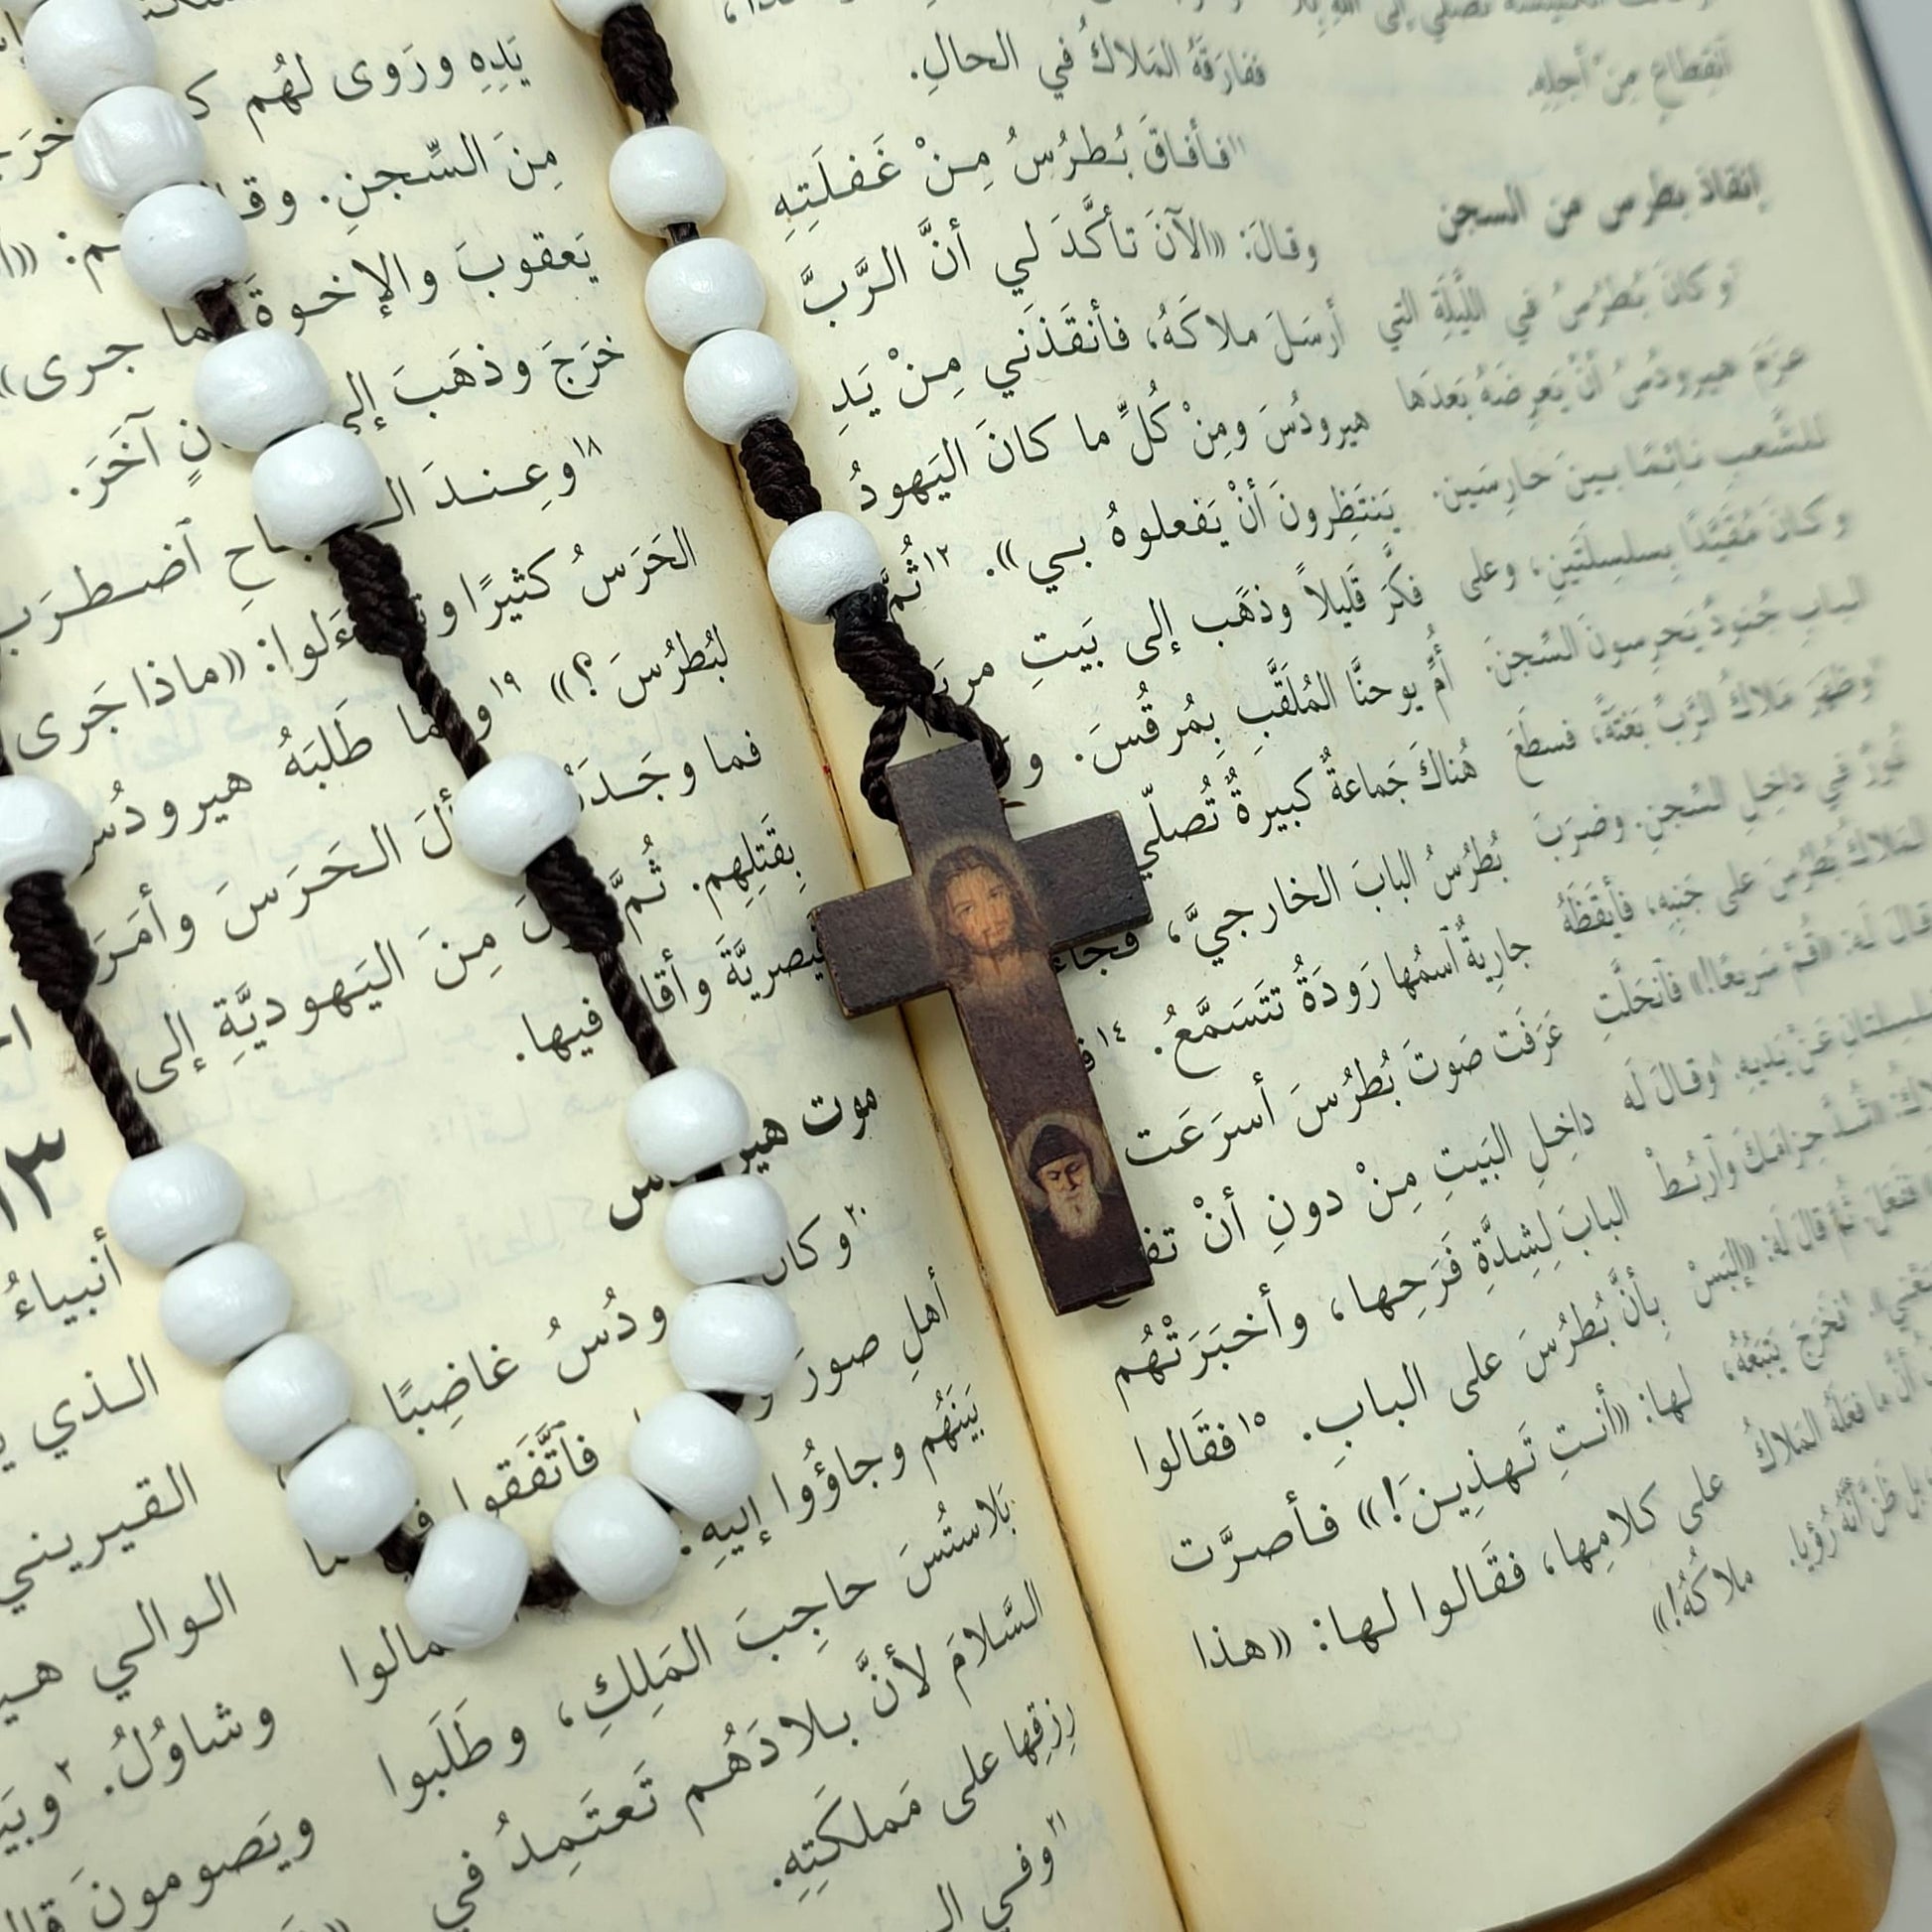 أنقِطاعٍ مِنْ أجلِهِ.
إنقاذ بطرس من السجن
وكانَ بُطرُسُ في اللَّيلَةِ التي
عزَمَ هيرودُسُ أنْ يَعرِضَهُ بَعدَها
للشَّعبِ نائِمًا بـينَ حارِسَينِ.
وكانَ مُقَيَّدًا بِسلسِلَتَينِ، وعلى
البابِ جُنودٌ يَحرِسونَ السِّجنَ.
وظهَرَ مَلاكُ الرَّبِّ بَغتَةً، فسطَعَ
نُورٌ في داخِلِ السِّجنِ. وضرَبَ
المَلاكُ بُطرُسَ على جَنبِهِ، فأيقَظَهُ
وقالَ لَه: «قُمْ سَريعًا!» فاَنحَلَّتِ
السِّلسِلتانِ عَنْ يَديهِ. وقالَ لَه
شُدَّ حِزامَكَ وَاَربُطْ
ففَعَلَ. ثُمَّ قالَ لَه: «إلبَسْ
فخرَجَ يَتبَعُهُ،
أنَّ ما فعَلَهُ المَلاكُ
بل ظَنَّ أنَّهُ رُؤيا.
ففارَقَهُ المَلاكُ في الحالِ.
١١فأفاقَ بُطرُسُ مِـنْ غَـفلَتِهِ
وقالَ: «الآنَ تأكَّدَ لي أنَّ الرَّبَّ
أرسَلَ ملاكَهُ، فأنقَذَني مِـنْ يَدِ
هيرودُسَ ومِنْ كُلِّ ما كانَ اليَهودُ
يَنتَظِرونَ أنْ يَفعلوهُ بـي». ١٢ثُمَّ
فكَّرَ قَليلاً وذهَب إلى بَيتِ مريَمَ
أُمِّ يوحنَّا المُلَقَّبِ بِمُرقُسَ. و
هُناكَ جَماعةٌ كبيرةٌ تُصلّي
بُطرُسُ البابَ الخارجيَّ، فجاءَ
جارِيةٌ اَسمُها رَودَةُ تتَسَمَّعُ. ١٤
عَرَفَت صَوتَ بُطرُسَ أسرَعَت
داخِلِ البَيتِ مِنْ دونِ أنْ تفـ
البابَ لِشِدَّةِ فَرَحِها، وأخبَرَتْهُم
بِأنَّ بُطرُسَ على البابِ. ١٥فقَالوا
لها: «أنتِ تَهذِينَ!» فأصرَّت
على كلامِها، فقَالوا لها: «هذا
ملاكُهُ!»
يَدِهِ ورَوى لهُم كـ خرَجَ
مِنَ السِّجنِ. وقا ـم: «
يَعقوبَ والإخوةَ ما جرى»
خرَجَ وذهَبَ إلى ـنٍ آخَرَ.
١٨وعِندَ الـ ـاحِ اَضطرَبَ
الحَرَسُ كثيرًا و ـاءَلوا: «ماذا جَرى
لبُطرُسَ؟» ١٩و ـما طَلَبَهُ هيرودُسُ
فما وجَـدَهُ ـألَ الـحَرَسَ وأمَرَ
بِقَتلِهِم. ثُمَّ ـلَ مِنَ اليَهوديَّةِ إلى
قيصريَّةَ وأقا فيها.
موت هيرودس
٢٠وكان ـودُسُ غاضِبًا
أهلِ صورَ و فاَتَّفَقوا فـ ـما
بَينَهُم وجاؤُوا إليهِ. ـمالوا
بَلاستُسَ حاجِبَ المَلِكِ، وطَلَبوا
السَّلامَ لأنَّ بـلادَهُم تَعتَمِدُ في
رِزقِها على مَملكَتِهِ.
٢١وفي الـ
١٣
أنبياءُ
الـذي
القيريني
الوالي هيـ
وشاوُلُ. ٢وبَيـ
ويَصومونَ قا